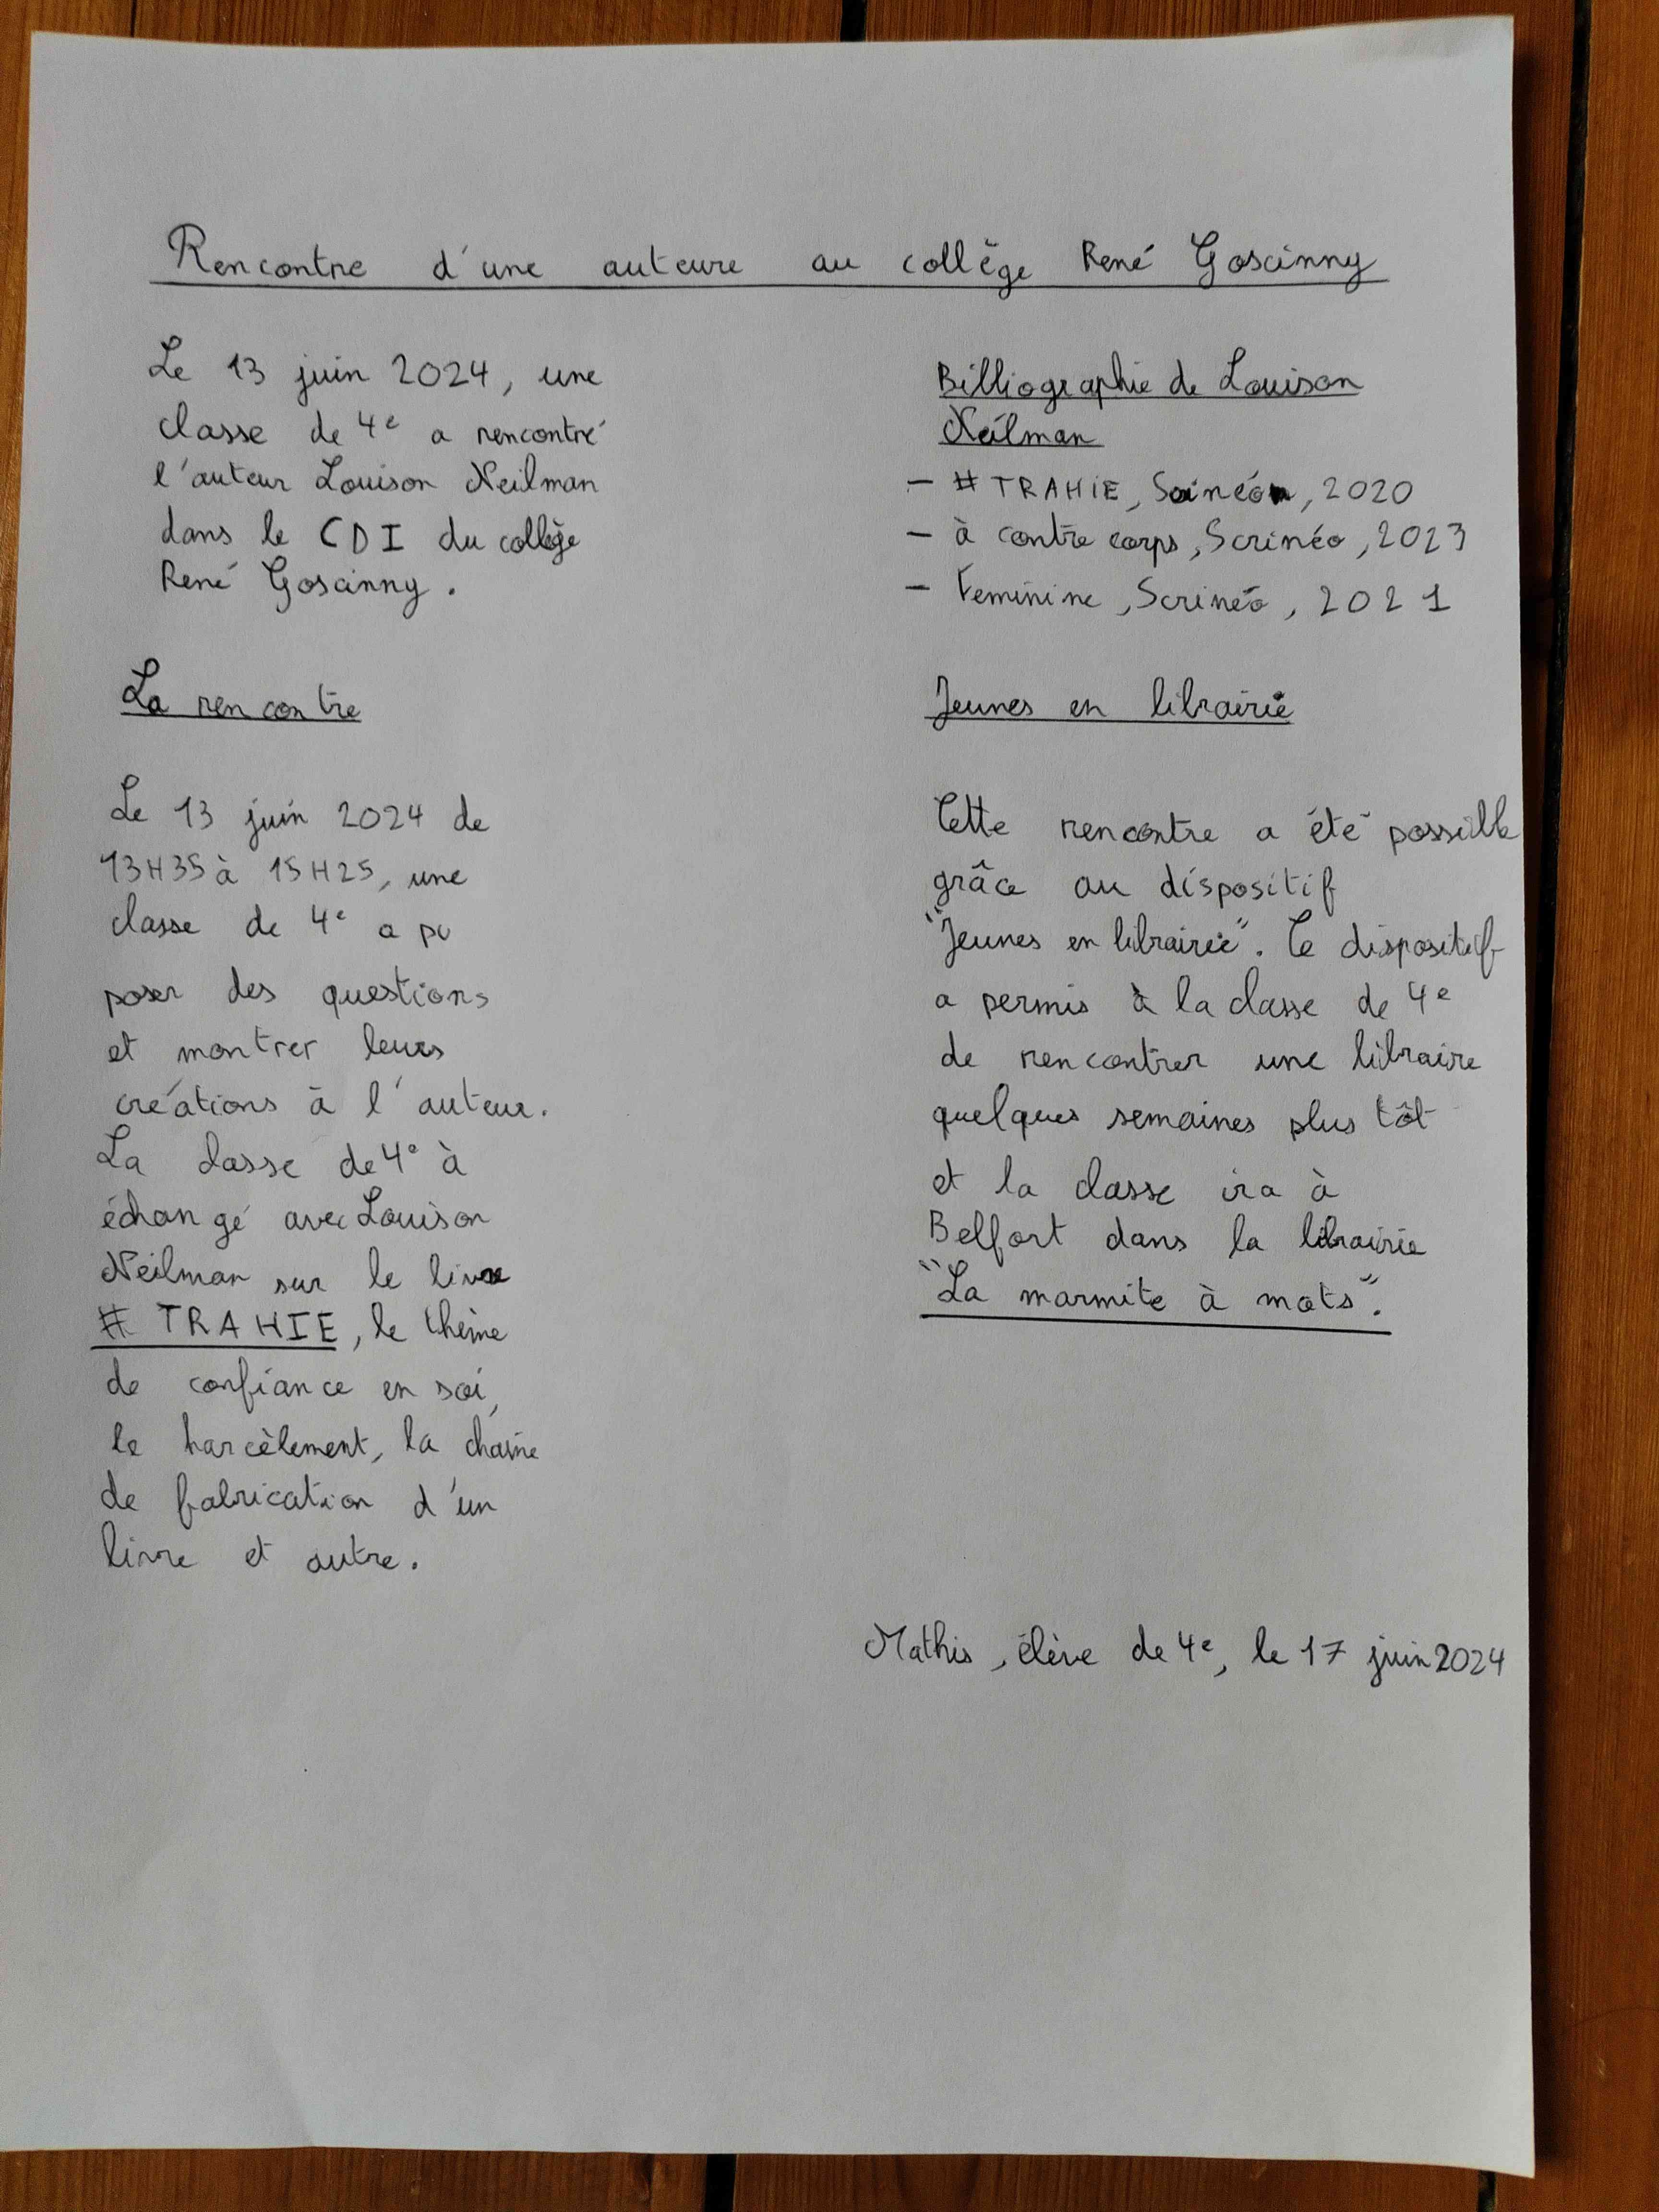 Rencontre d'une auteure au collège René Goscinny
Le 13 juin 2024, une
classe de 4e a rencontré
l'auteur Louison Neilman
dans le CDI du collège
René Goscinny.
La rencontre
Le 13 juin 2024 de
13H35 à 15H25, une
classe de 4e a pu
poser des questions
et montrer leurs
créations à l'auteur.
La classe de 4e à
échangé avec Louison
Neilman sur le livre
# TRAHIE, le thème
de confiance en soi,
le harcèlement, la chaîne
de fabrication d'un
livre et autre.
Billiographie de Louison
Neilman
- # TRAHIE, 2020
- à contre corps, Scrinéo, 2023
- Féminine, Scrinéo, 2021
Jeunes en librairie
Cette rencontre a été possible
grâce au dispositif
"Jeunes en librairie". Ce dispositif
a permis à la classe de 4e
de rencontrer une libraire
quelques semaines plus tôt
et la classe ira à
Belfort dans la librairie
"La marmite à mots".
Mathis, élève de 4e, le 17 juin 2024